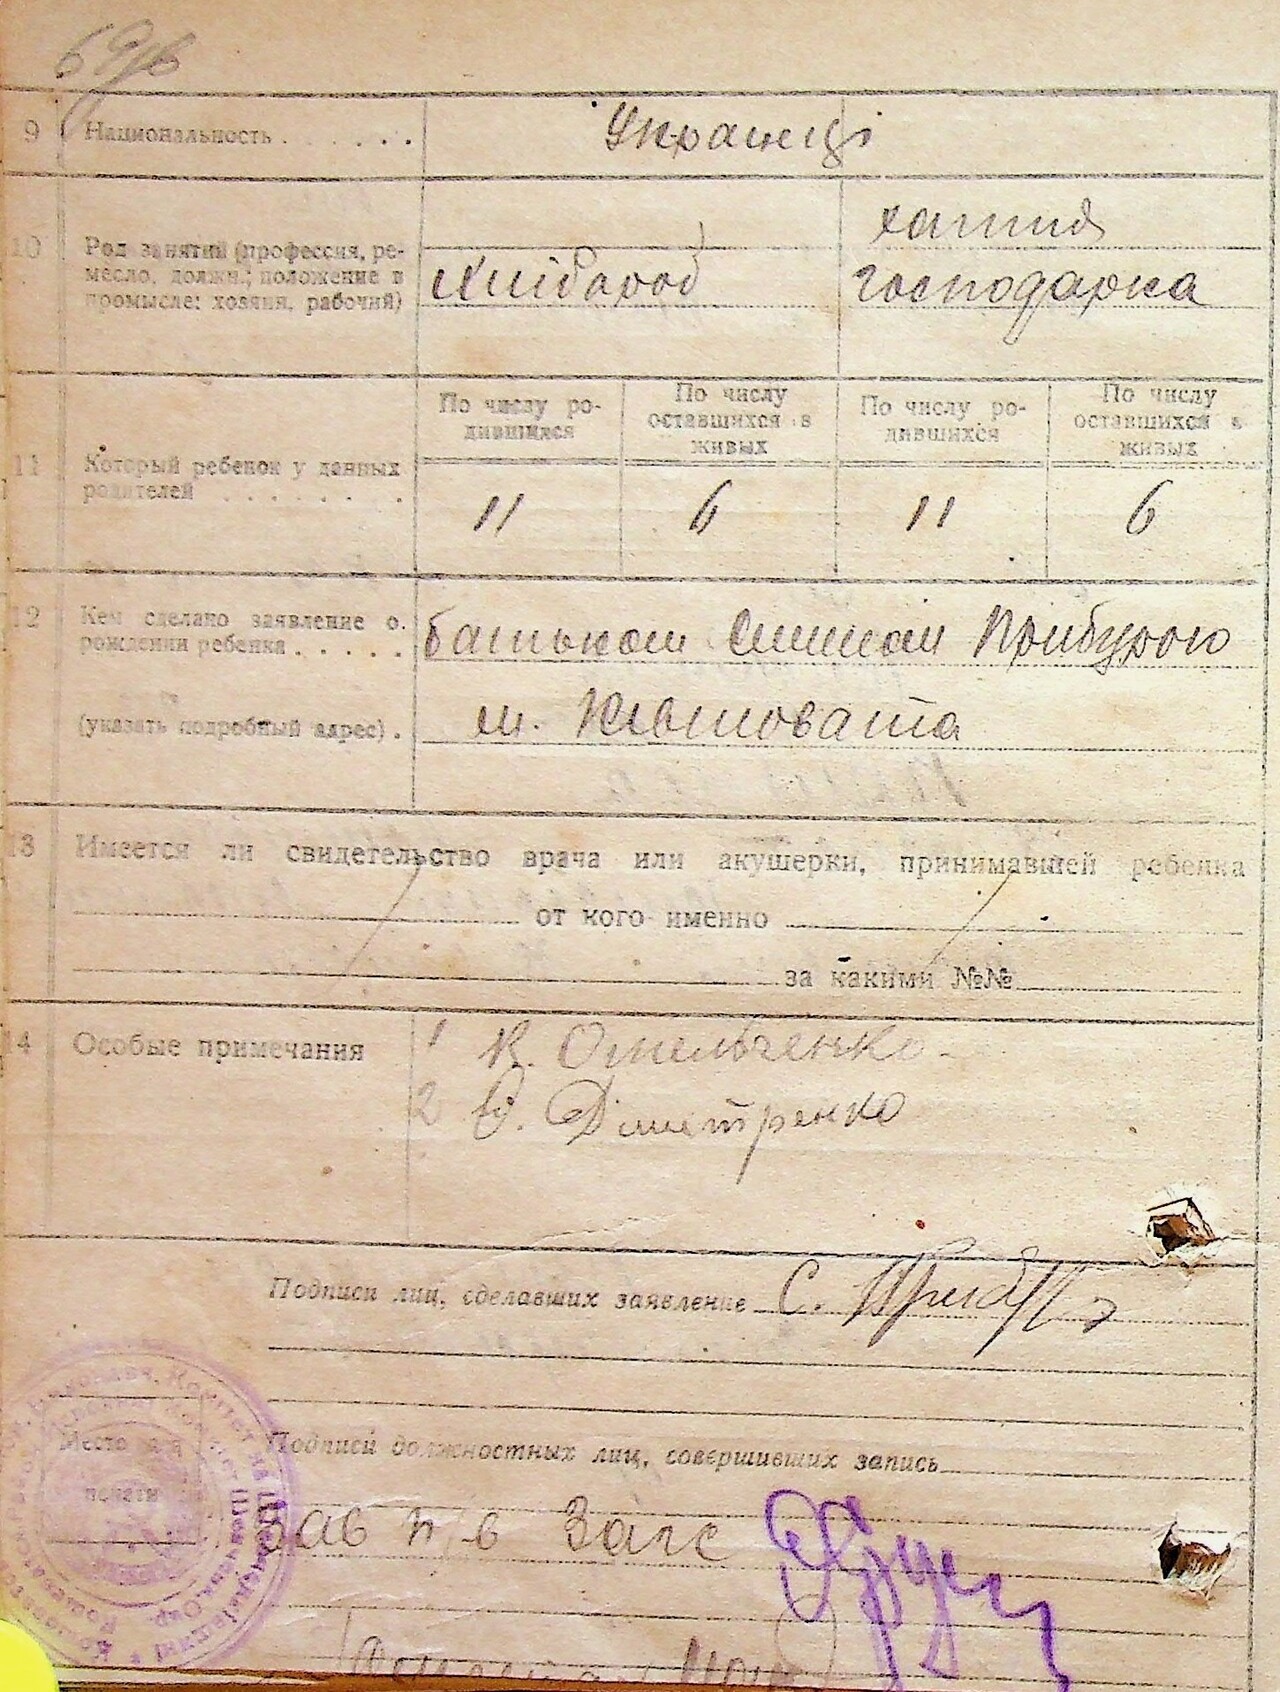 9 Национальность . . . . . . Українці
10 Род занятий (профессия, ре-
месло, должн.; положение в
промысле: хозяин, рабочий)
Хлібороб
хатня
господарка
11 Который ребенок у данных
родителей . . . . . . .
По числу ро-
дившихся
По числу
оставшихся в
живых
По числу ро-
дившихся
По числу
оставшихся в
живых
11 6 11 6
12 Кем сделано заявление о
рождении ребенка . . . . . батьком Прибурою
(указать подробный адрес) . м.
13 Имеется ли свидетельство врача или акушерки, принимавшей ребенка
от кого именно
за какими №№
14 Особые примечания 1 К. Омельченко
2 Дмитренко
Подписи лиц, сделавших заявление С.
Место для
печати
Подписи должностных лиц, совершивших запись
Зав п/в Загс